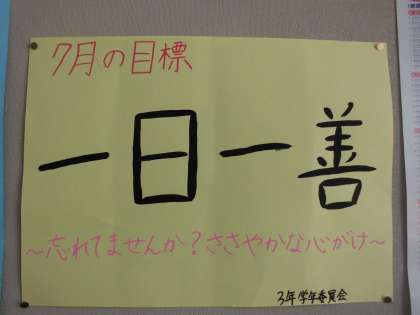 7月の目標
一日一善
～忘れてませんか？ささやかな心がけ～
3年学年委員会